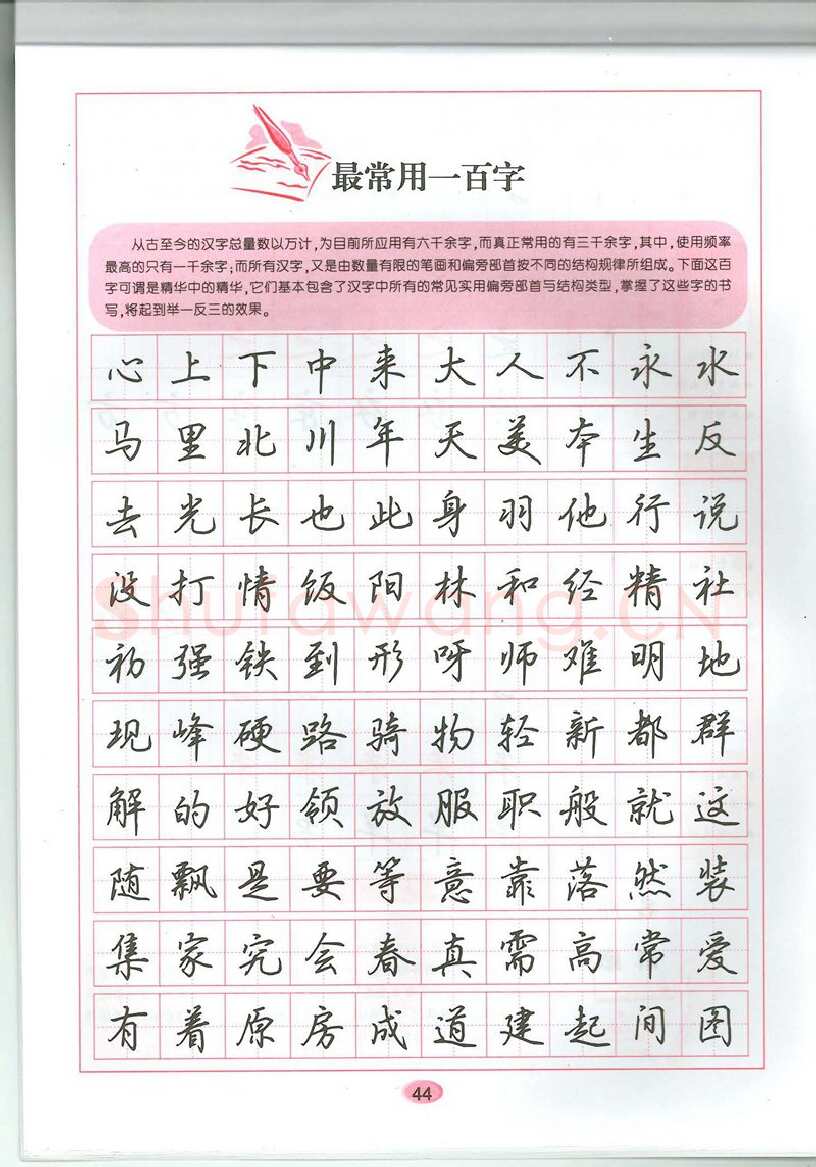 最常用一百字
从古至今的汉字总量数以万计,为目前所应用有六千余字,而真正常用的有三千余字,其中,使用频率
最高的只有一千余字;而所有汉字,又是由数量有限的笔画和偏旁部首按不同的结构规律所组成。下面这百
字可谓是精华中的精华,它们基本包含了汉字中所有的常见实用偏旁部首与结构类型,掌握了这些字的书
写,将起到举一反三的效果。
心上下中来大人不永水
马里北川年天美本生反
去光长也此身羽他行说
没打情饭阳林和经精社
初强铁到形呀师难明地
现峰硬路骑物轻新都群
解的好领放服职般就这
随飘是要等意靠落然装
集家究会春真需高常爱
有着原房成道建起间图
44
Shufawang.CN